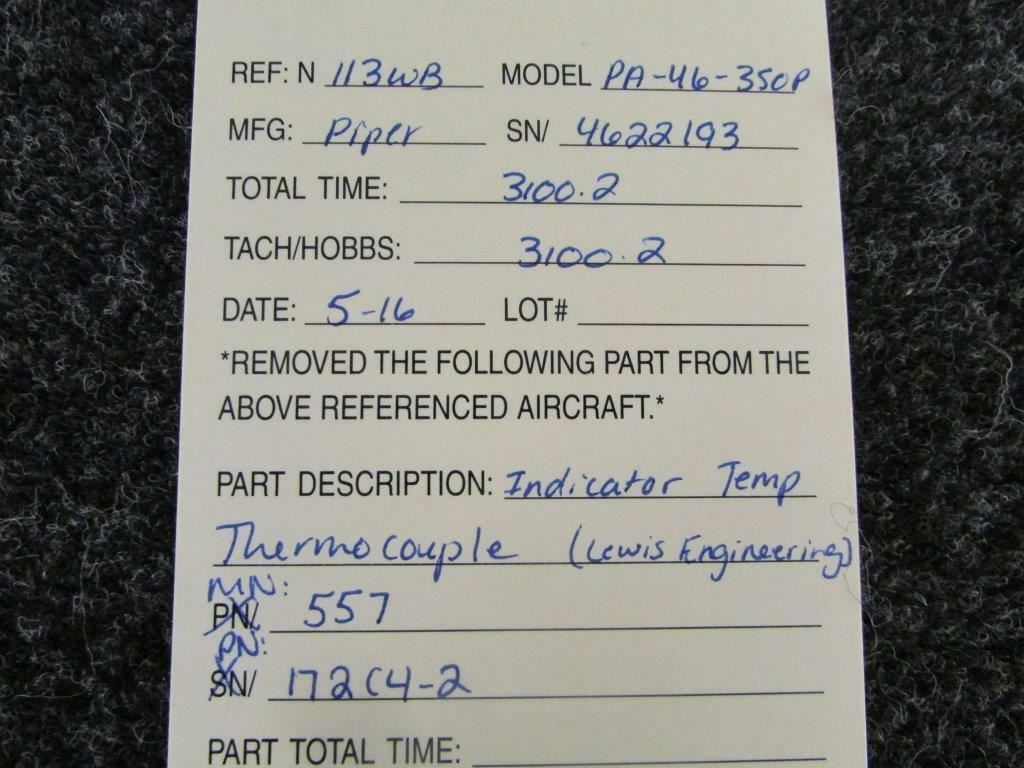 REF: N 113WB MODEL PA-46-350P
MFG: Piper SN/ 4622193
TOTAL TIME: 3100.2
TACH/HOBBS: 3100.2
DATE: 5-16 LOT#
*REMOVED THE FOLLOWING PART FROM THE
ABOVE REFERENCED AIRCRAFT.*
PART DESCRIPTION: Indicator Temp
Thermocouple (Lewis Engineering)
MN:
PN/ 557
PN:
SN/ 172C4-2
PART TOTAL TIME: